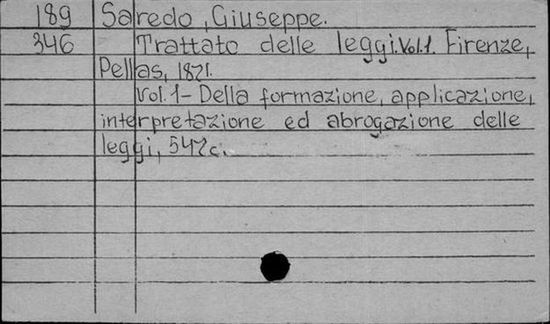 189 Saredo, Giuseppe.
346 Trattato delle leggi. Vol. 1. Firenze,
Pellas, 1871.
Vol. 1 - Della formazione, applicazione,
interpretazione ed abrogazione delle
leggi, 547 c.